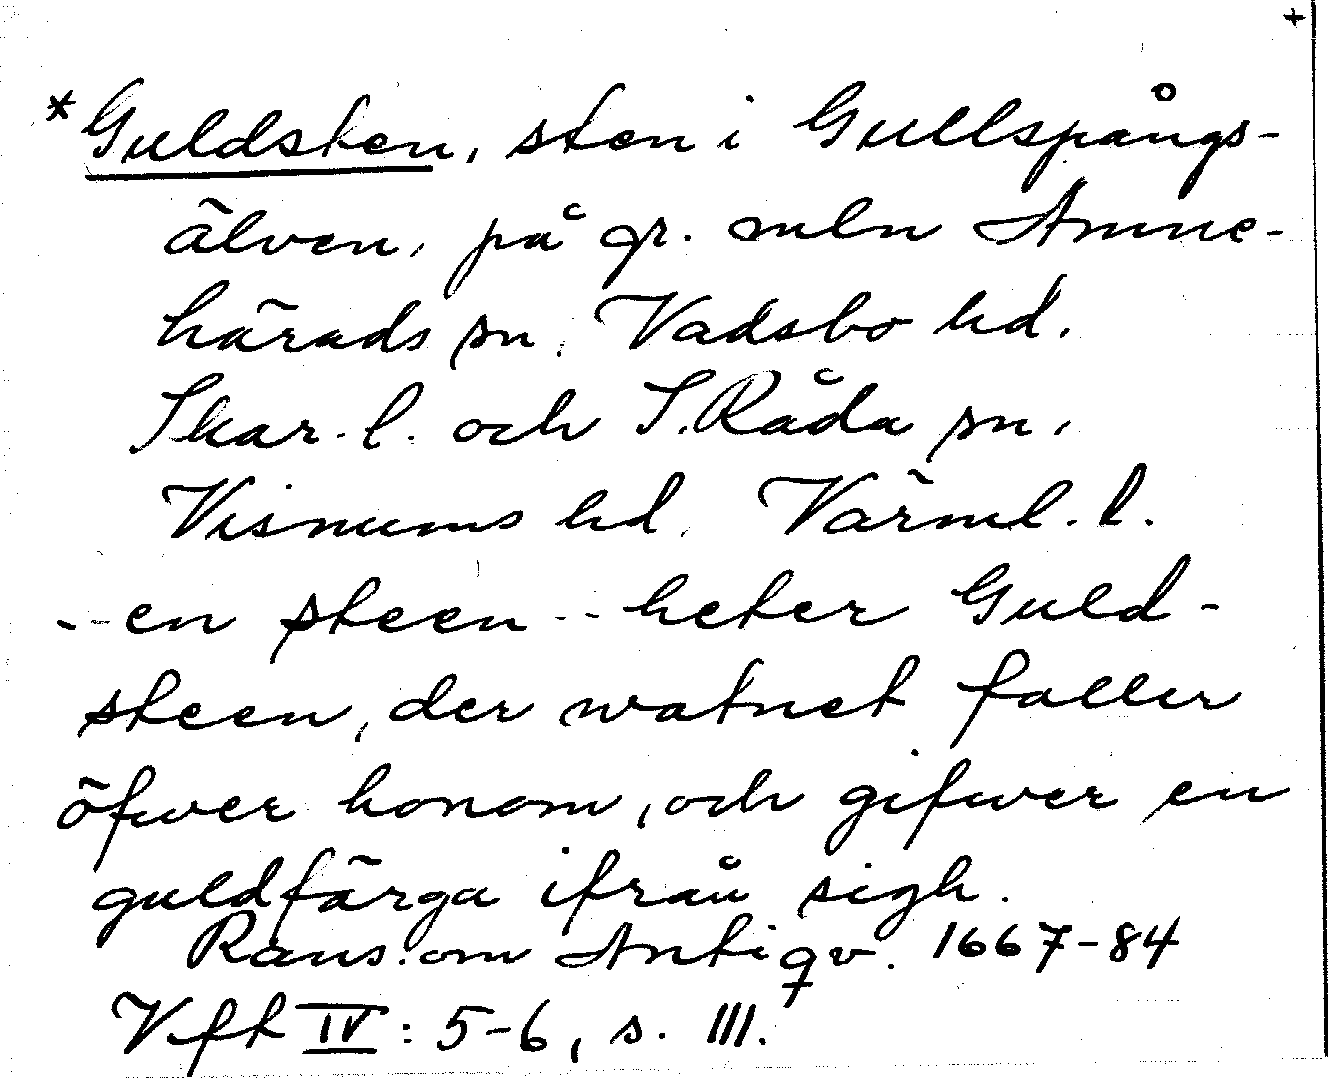 +
*Guldsten, sten i Gullspångs-
älven, på gr. mln Amne-
härads sn, Vadsbo hd.
Skar. l. och S. Råda sn,
Visnums hd, Värml. l.
--en steen -- heter Guld-
steen, der watnet faller
öfwer honom, och gifwer en
guldfärga ifrån sigh.
Rans. om Antiqv. 1667-84
Vft IV: 5-6, s. 111.